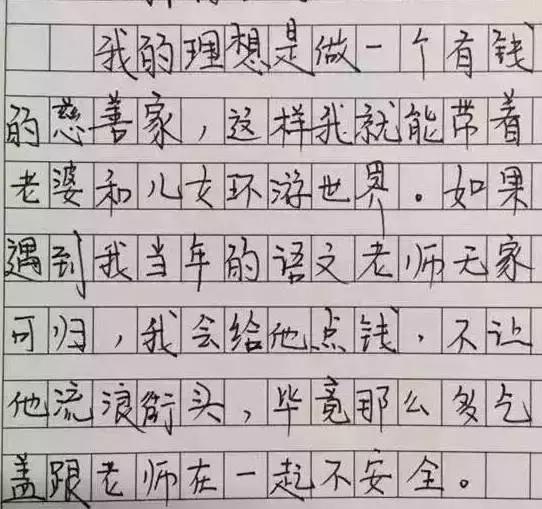 我的理想是做一个有钱
的慈善家，这样我就能带着
老婆和儿女环游世界。如果
遇到我当年的语文老师无家
可归，我会给他点钱，不让
他流浪街头，毕竟那么多乞
盖跟老师在一起不安全。